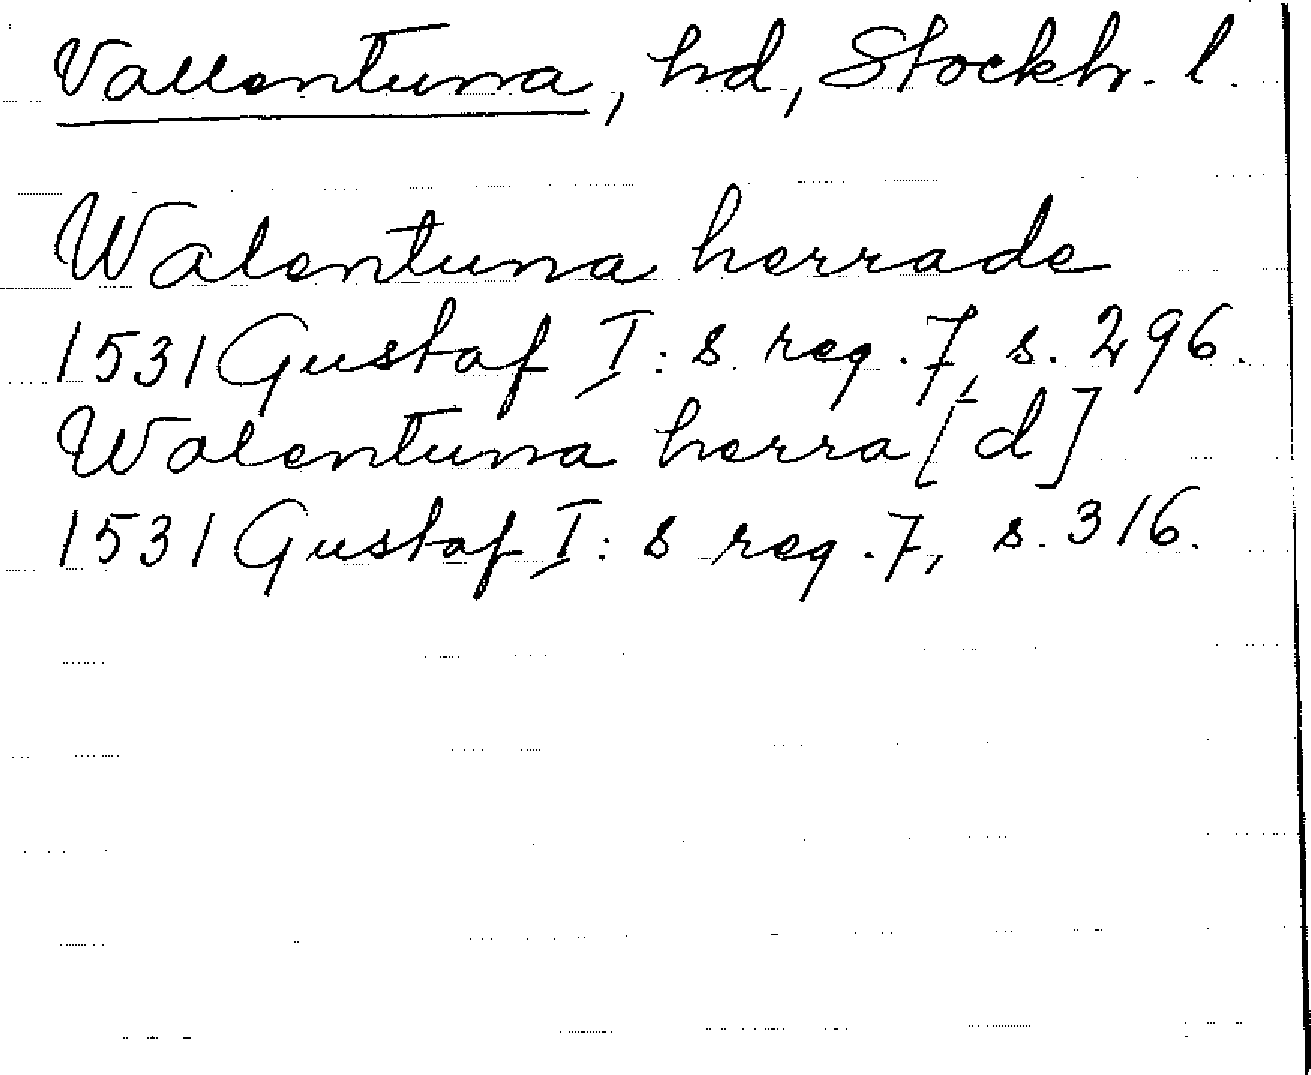 Vallentuna, hd, Stockh. l.
Walentuna herrade
1531 Gustaf I:s reg. 7, s. 296.
Walentuna herra[d]
1531 Gustaf I:s reg. 7, s. 316.